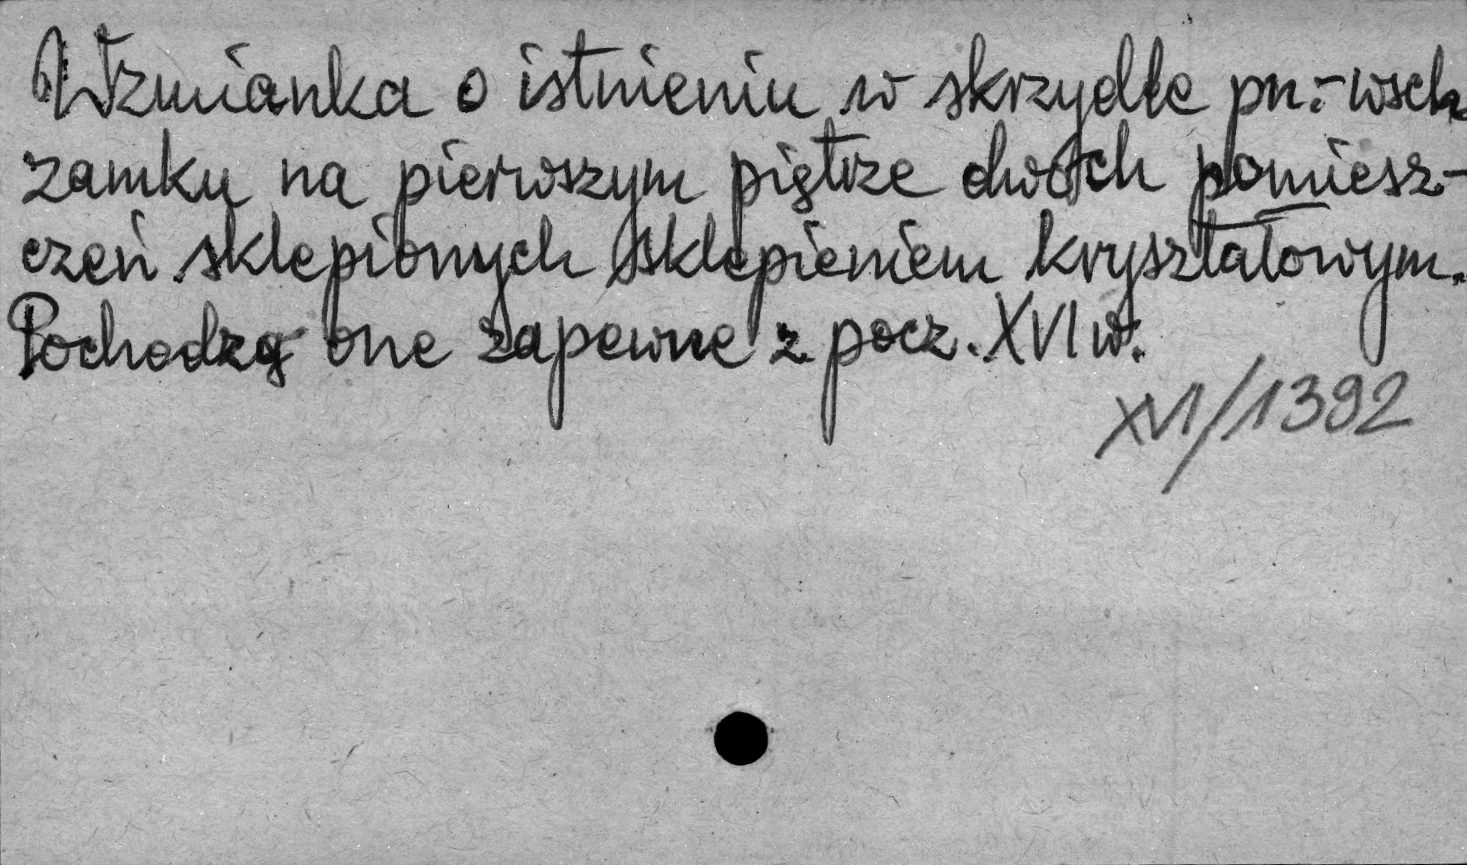 Wzmianka o istnieniu w skrzydle pn.-wsch
zamku na pierwszym piętrze dwóch pomiesz-
czeń sklepionych sklepieniem kryształowym.
Pochodzą one zapewne z pocz. XVI w.
XVI/1392